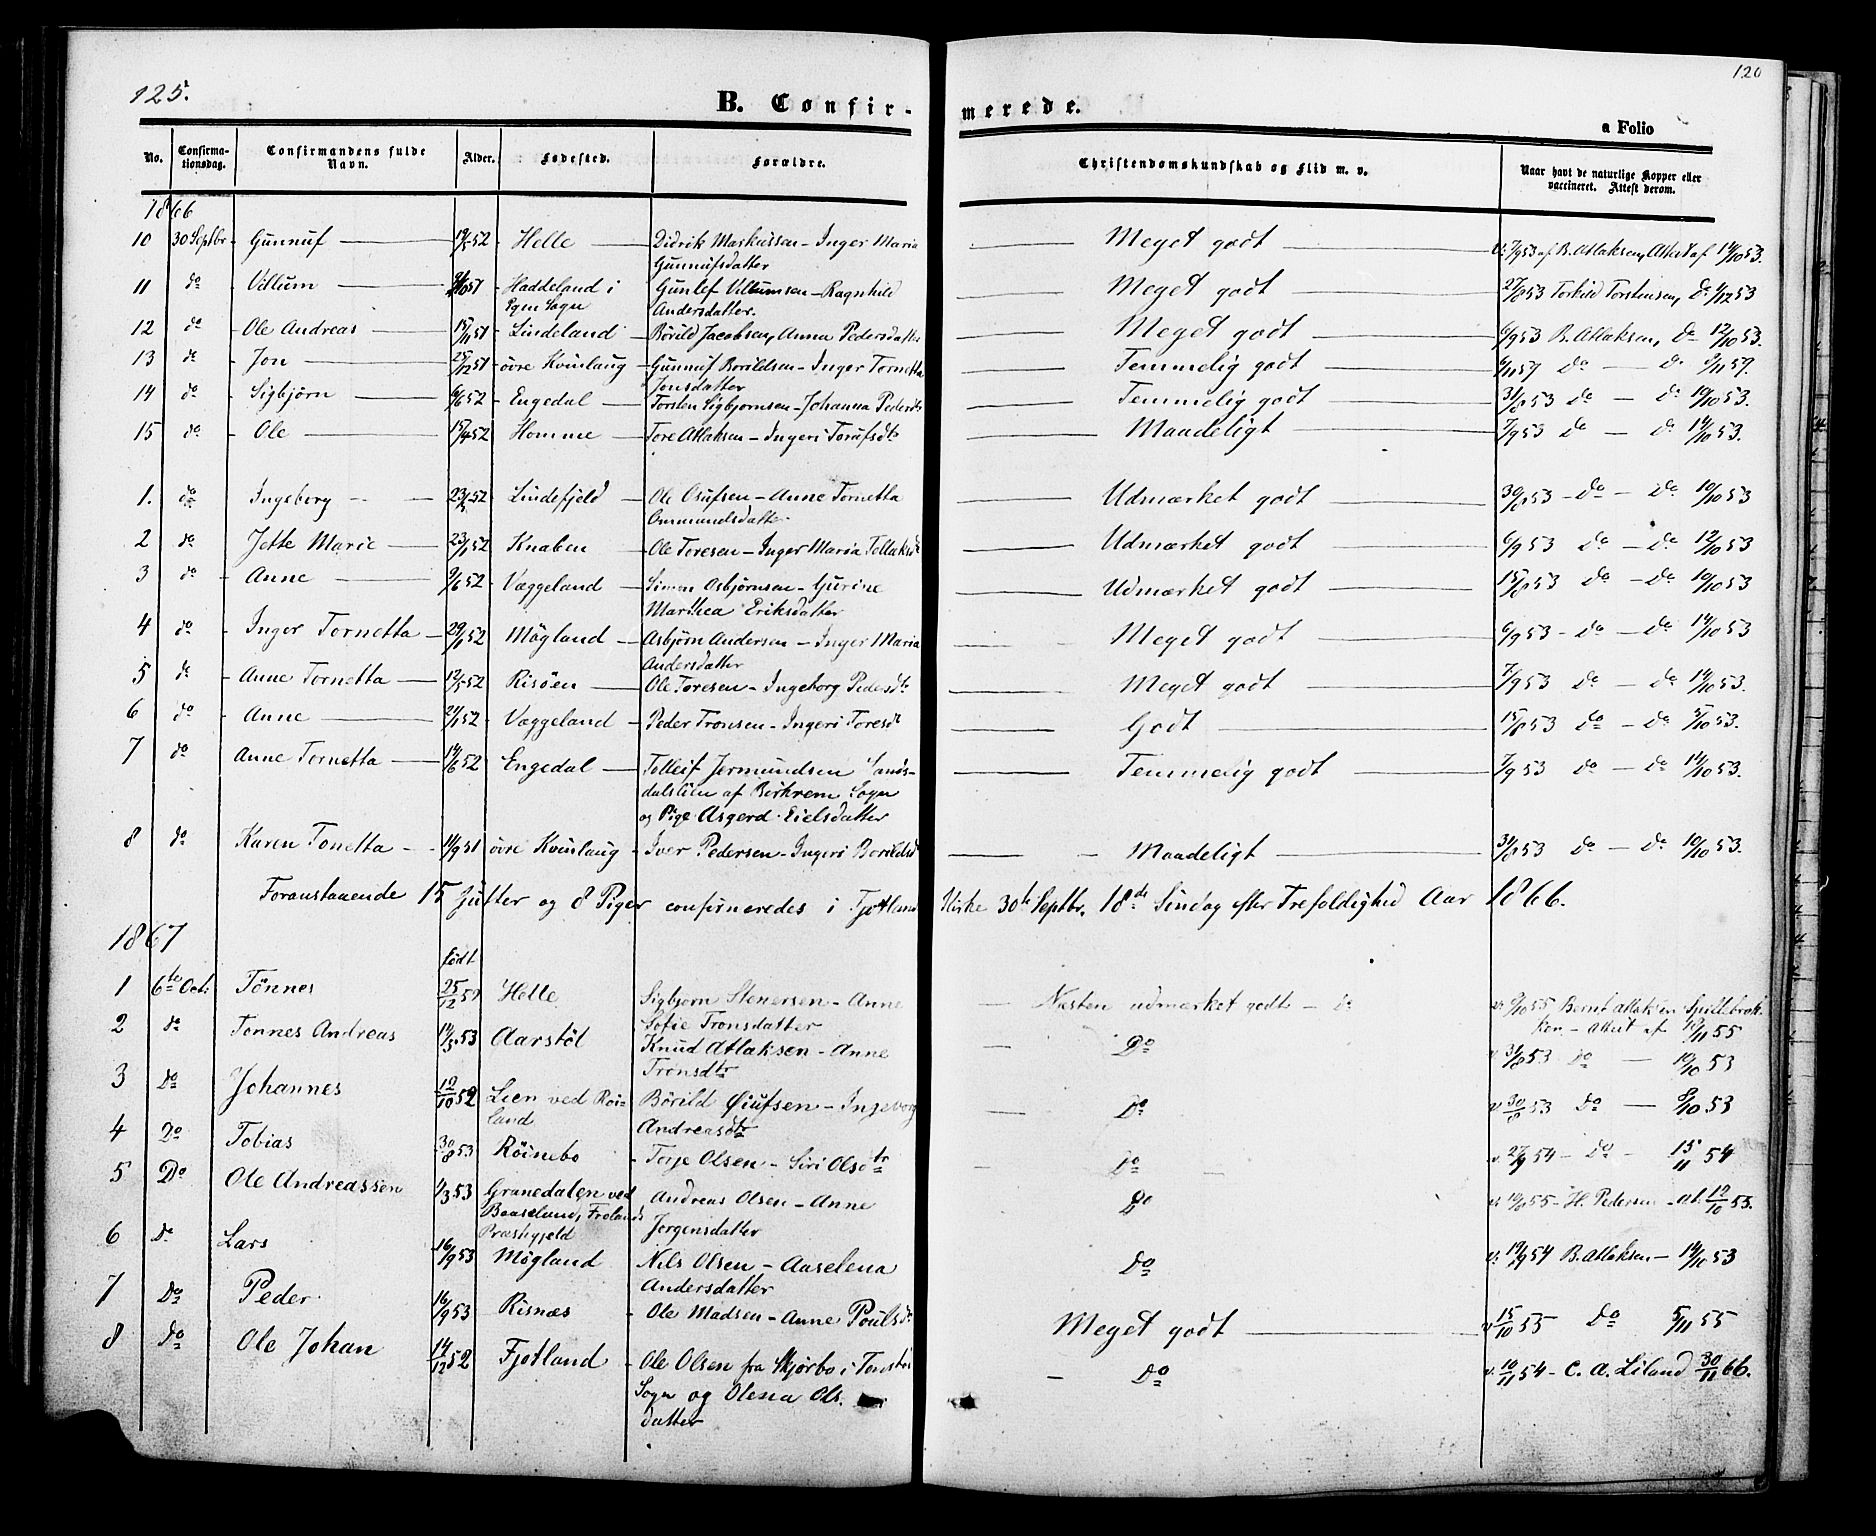 125.
120
B. Confir-
merede.
a Folio
No.
Confirma-
tionsdag.
Confirmandens fulde
Navn.
Alder.
Fødested.
Forældre.
Christendomskundskab og Flid m. v.
Naar havt de naturlige Kopper eller
vaccineret. Attest derom.
1866
10 30 Septbr. Gunnuf 52 Helle Didrik Markussen - Inger Maria Meget godt 7/9 53 af B. Atlaksen, Attest af 14/10 53.
Gunnufsdatter
11 do Villum 51 Haddeland i Gunlef Villumsen - Ragnhild Meget godt 27/8 53 Torkild Torstensen, do 1/12 53
Sogn Andersdatter.
12 do Ole Andreas 15/11 51 Lindeland Börild Jacobsen, Anna Pedersdatter Meget godt 6/9 53 B. Atlaksen, do 12/10 53.
13 do Jon 25/12 51 övre Kvinlaug Gunnuf Borildsen - Inger Tornetta Temmelig godt 6/11 57 do do 9/11 59.
Jonsdatter
14 do Sigbjörn 6/6 52 Engedal Torsten Sigbjornsen - Johanna Pedersdt Temmelig godt 31/8 53 do - do 10/10 53.
15 do Ole 15/4 52 Homme Tore Atlaksen - Ingeri Torufsdt Maadeligt 7/9 53 do - do 14/10 53.
1. do Ingeborg 52 Lindefjeld Ole Osufsen - Anne Tornetta Udmærket godt 30/8 53 - do - do 10/10 53
Ommundsdatter
2 do Jette Marie 23/1 52 Knaben Ole Toresen - Inger Maria Tollaksdt Udmærket godt 6/9 53 do - do 12/10 53
3 do Anne 9/6 52 Væggeland Simon Osbjörnsen - Gurine Udmærket godt 15/8 53 do - do 10/10 53
Marthea Eriksdatter
4 do Inger Tornetta 29/1 52 Mögland Asbjörn Andersen - Inger Maria Meget godt 6/9 53 - do - do 14/10 53
Andersdatter
5 do Anne Tornetta 12/5 52 Risöen Ole Toresen - Ingeborg Pedersdt Meget godt 7/9 53 do - do 14/10 53.
6 do Anne 21/1 52 Væggeland Peder Tronsen - Ingeri Toresdt Godt 15/8 53 do - do 5/10 53.
7 do Anne Tornetta 14/6 52 Engedal Tolleif Jermundsen Temmelig godt 7/9 53 do - do 14/10 53.
dalslien af Birkrem Sogn
og Pige Asgerd Eielsdatter
8 do Karen Tonetta 14/9 51 övre Kvinlaug Iver Pedersen - Ingeri Borildsd Maadeligt 31/8 53 do - do 10/10 53.
Foranstaaende 15 Gutter og 8 Piger confirmeredes i Fjotland Kirke 30te Septbr. 18de Söndag efter Trefoldighed Aar 1866.
1867
födt
1 6te Oct: Tönnes 25/12 52 Helle Sigbjörn Stenersen - Anne Næsten udmærket godt - do v. 9/10 55 Bernt Atlaksen
Sofie Tronsdatter - Attest af 55
2 do Tonnes Andreas 14/3 53 Aarstöl Knud Atlaksen - Anne Do v. 31/8 53 do - 10/10 53
Tronsdtr
3 Do Johannes 12/10 52 Lien ved Röi- Börild Øiufsen - Ingeborg Do v 30/8 53 Do - 8/10 53
land Andreasdtr
4 Do Tobias 30/8 53 Röinebo Torje Olsen - Siri Olsdtr Do v. 27/9 54 - do - 15/11 54
5 Do Ole Andreassen 1/3 53 Granedalen ved Andreas Olsen - Anne Do 55 - H. Pedersen - at. 12/10 53.
Baaseland, Frolands Jörgensdatter
Præstegjeld
6 do Lars 16/9 53 Mögland Nils Olsen - Aaselena Do 54 B. Atlaksen - 14/10 53
Andersdatter
7 Do Peder 16/9 53 Risnæs Ole Madsen - Anne Poulsdr Meget godt v 15/10 55 Do 5/11 55
8 Do Ole Johan 14/12 52 Fjotland Ole Olsen fra Skjörbo i Tonstad Do v. 10/11 54 - C. A. Liland 30/11 66.
Sogn og Olena Ols.
datter